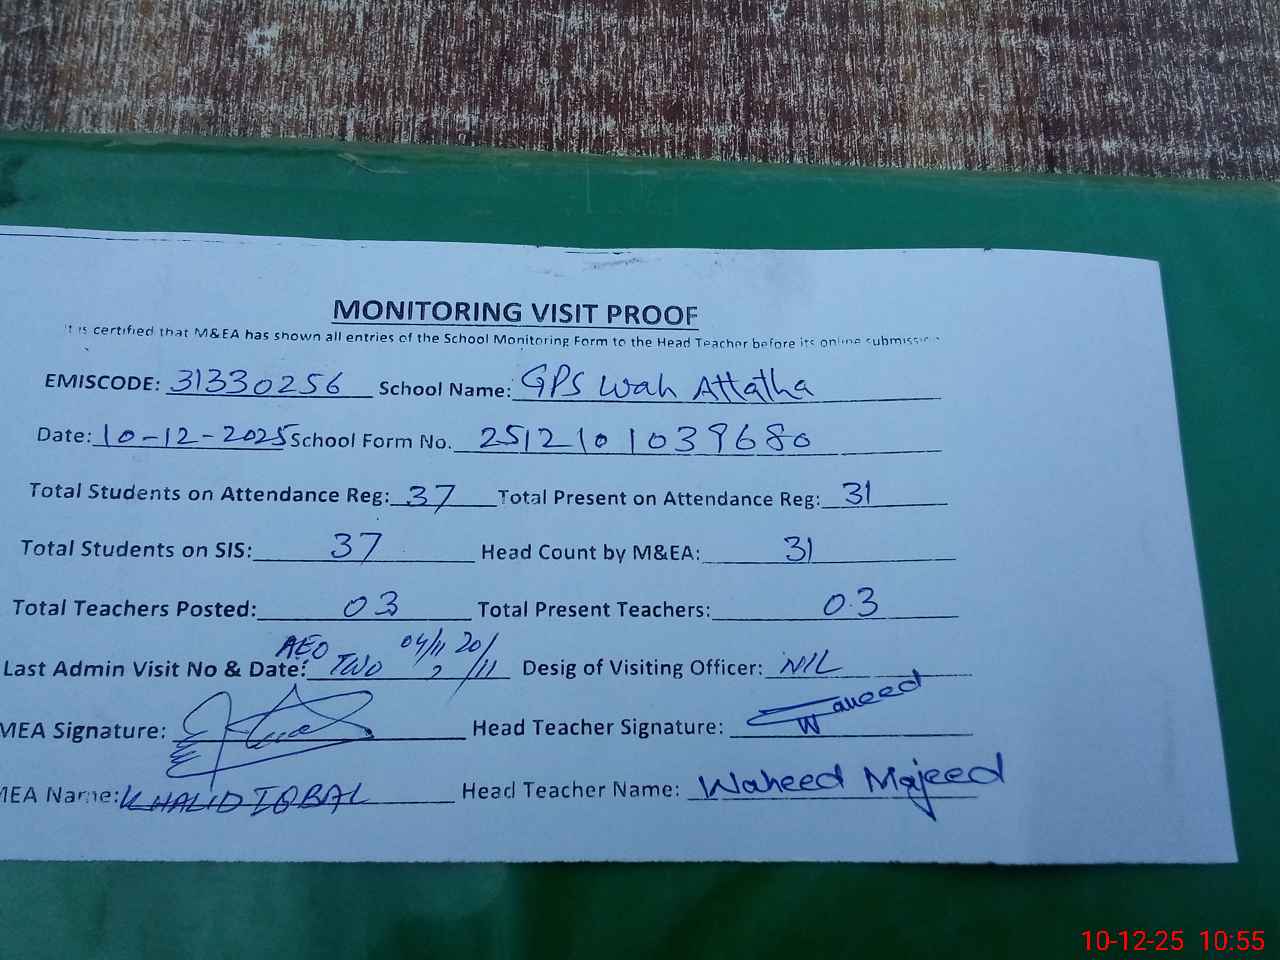 MONITORING VISIT PROOF
It is certified that M&EA has shown all entries of the School Monitoring Form to the Head Teacher before its online submission
EMISCODE: 31330256 School Name: GPS Wah Attatha
Date: 10-12-2025 School Form No. 2512101039680
Total Students on Attendance Reg: 37 Total Present on Attendance Reg: 31
Total Students on SIS: 37 Head Count by M&EA: 31
Total Teachers Posted: 03 Total Present Teachers: 03
Last Admin Visit No & Date: AEO TWO 04/11, 20/11 Desig of Visiting Officer: NIL
MEA Signature: Head Teacher Signature: Waheed
MEA Name: KHALID IQBAL Head Teacher Name: Waheed Majeed
10-12-25 10:55